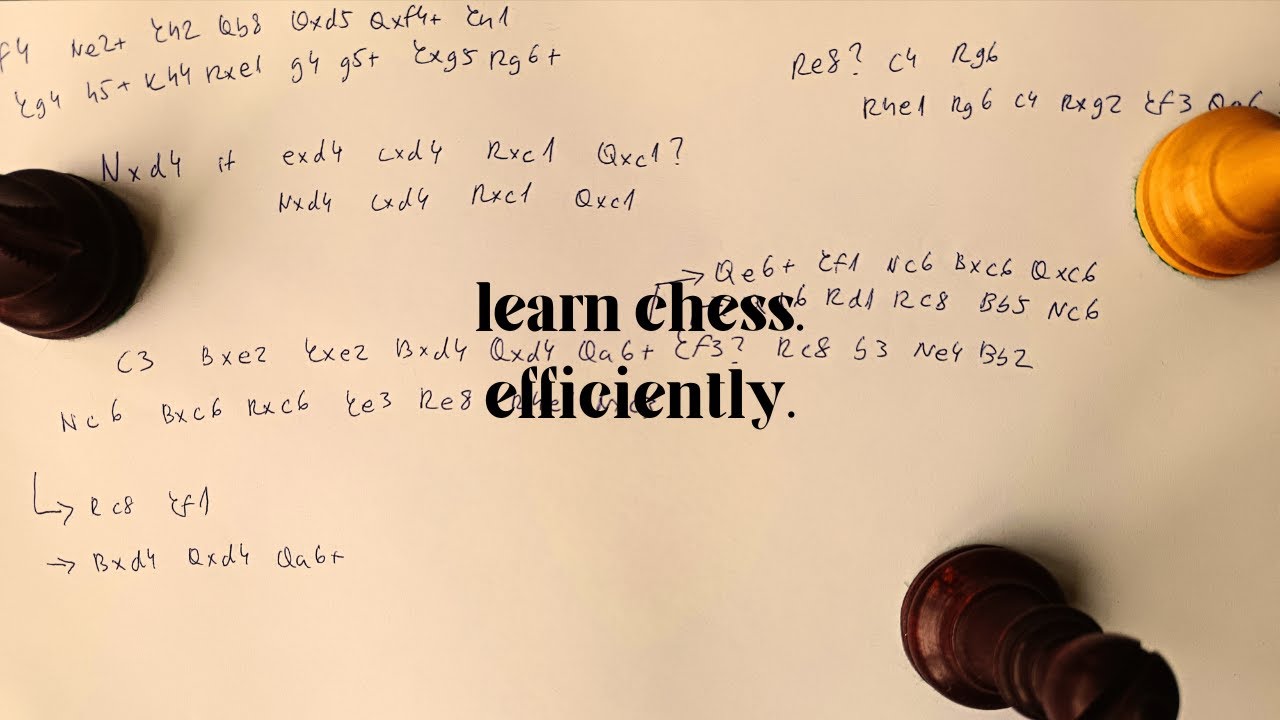 f4 Ne2+ Kh2 Qb8 Qxd5 Qxf4+ Kh1
Kg4 h5+ Kh4 Rxe1 g4 g5+ Kxg5 Rg6+
Re8? c4 Rg6
Rhe1 Rg6 c4 Rxg2 Kf3
Nxd4 if exd4 cxd4 Rxc1 Qxc1?
Nxd4 cxd4 Rxc1 Qxc1
→ Qe6+ Kf1 Nc6 Bxc6 Qxc6
Rd1 Rc8 Bb5 Nc6
learn chess.
C3 Bxe2 Kxe2 Bxd4 Qxd4 Qa6+ Kf3? Rc8 b3 Ne4 Bb2
efficiently.
Nc6 Bxc6 Rxc6 Ke3 Re8
→ Rc8 Kf1
→ Bxd4 Qxd4 Qa6+